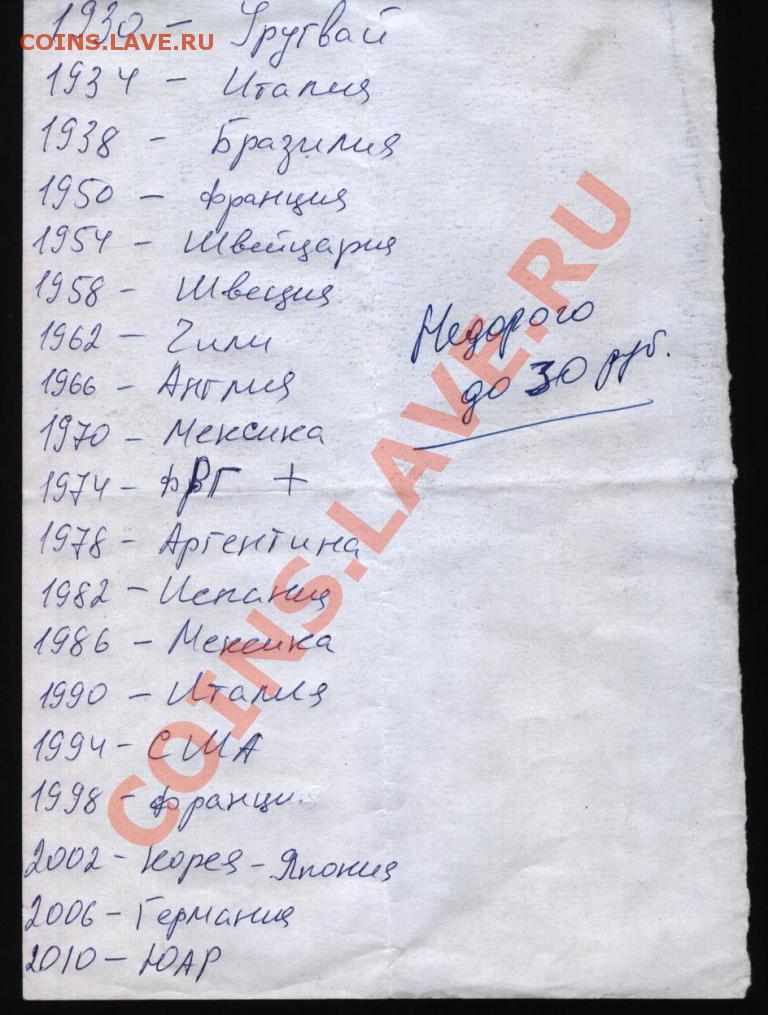 1930 - Уругвай
COINS.LAVE.RU
1934 - Италия
1938 - Бразилия
1950 - Франция
1954 - Швейцария
1958 - Швеция
1962 - Чили
1966 - Англия
1970 - Мексика
1974 - ФРГ +
1978 - Аргентина
1982 - Испания
1986 - Мексика
1990 - Италия
1994 - США
1998 - Франция
2002 - Корея - Япония
2006 - Германия
2010 - ЮАР
Недорого
до 30 руб.
COINS.LAVE.RU